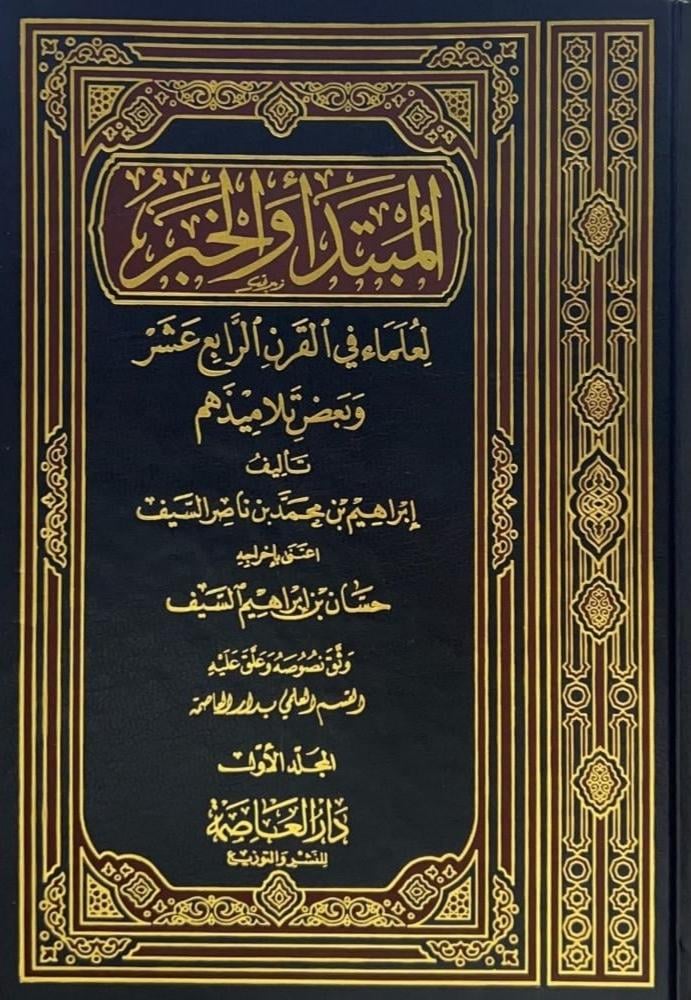 المُبتَدأ وَالخَبَرُ
لِعُلَمَاء في القَرنِ الرَّابِع عَشَرْ
وَبَعْضِ تَلَامِيْذهم
تَأليفُ
إبْراهِيْم بن محمَّد بن ناصِر السَّيف
اعتَنى بإخراجِه
حسَان بن إبراهيم السَّيف
وَثَّقَ نصُوصَه وَعَلَّق عَلَيْهِ
القسم العلمي بدار العاصمة
المجَلّد الأوّل
دَارُ العَاصِمَة
للنشر والتوزيع